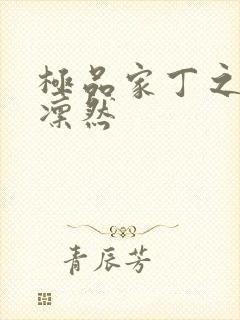 極品家丁之
凜然
青辰芳